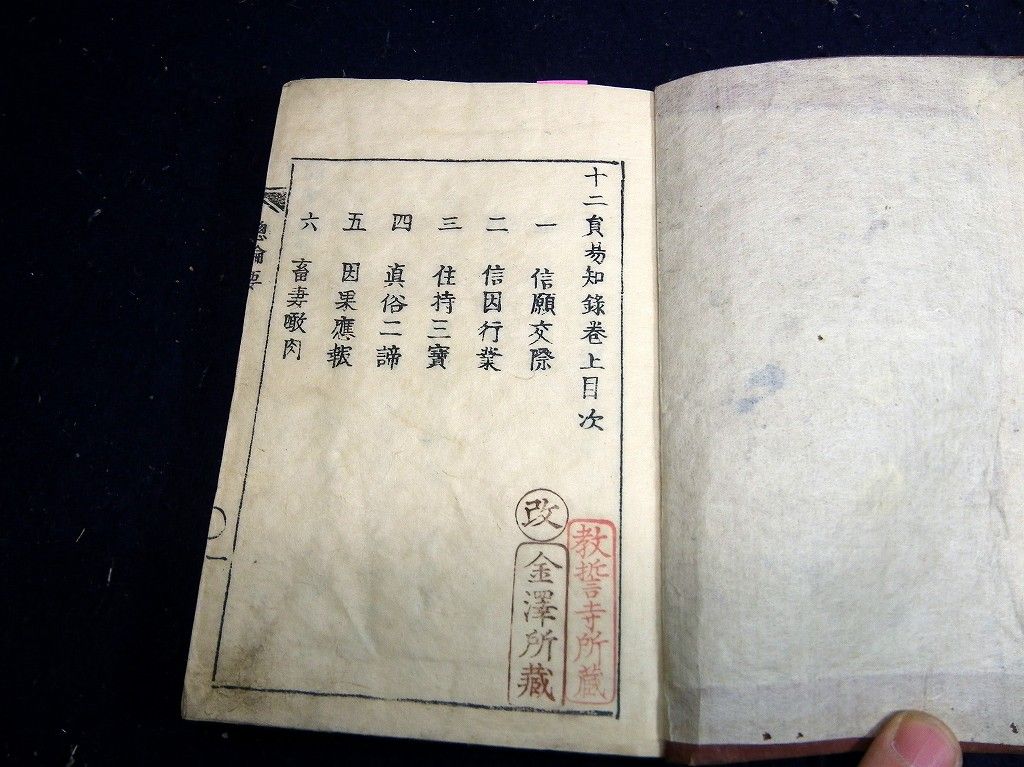 十二負易知錄卷上目次
一 信願交際
二 信因行業
三 住持三寶
四 眞俗二諦
五 因果應報
六 畜妻噉肉
總論要
一
改
金澤所藏
教誓寺所藏